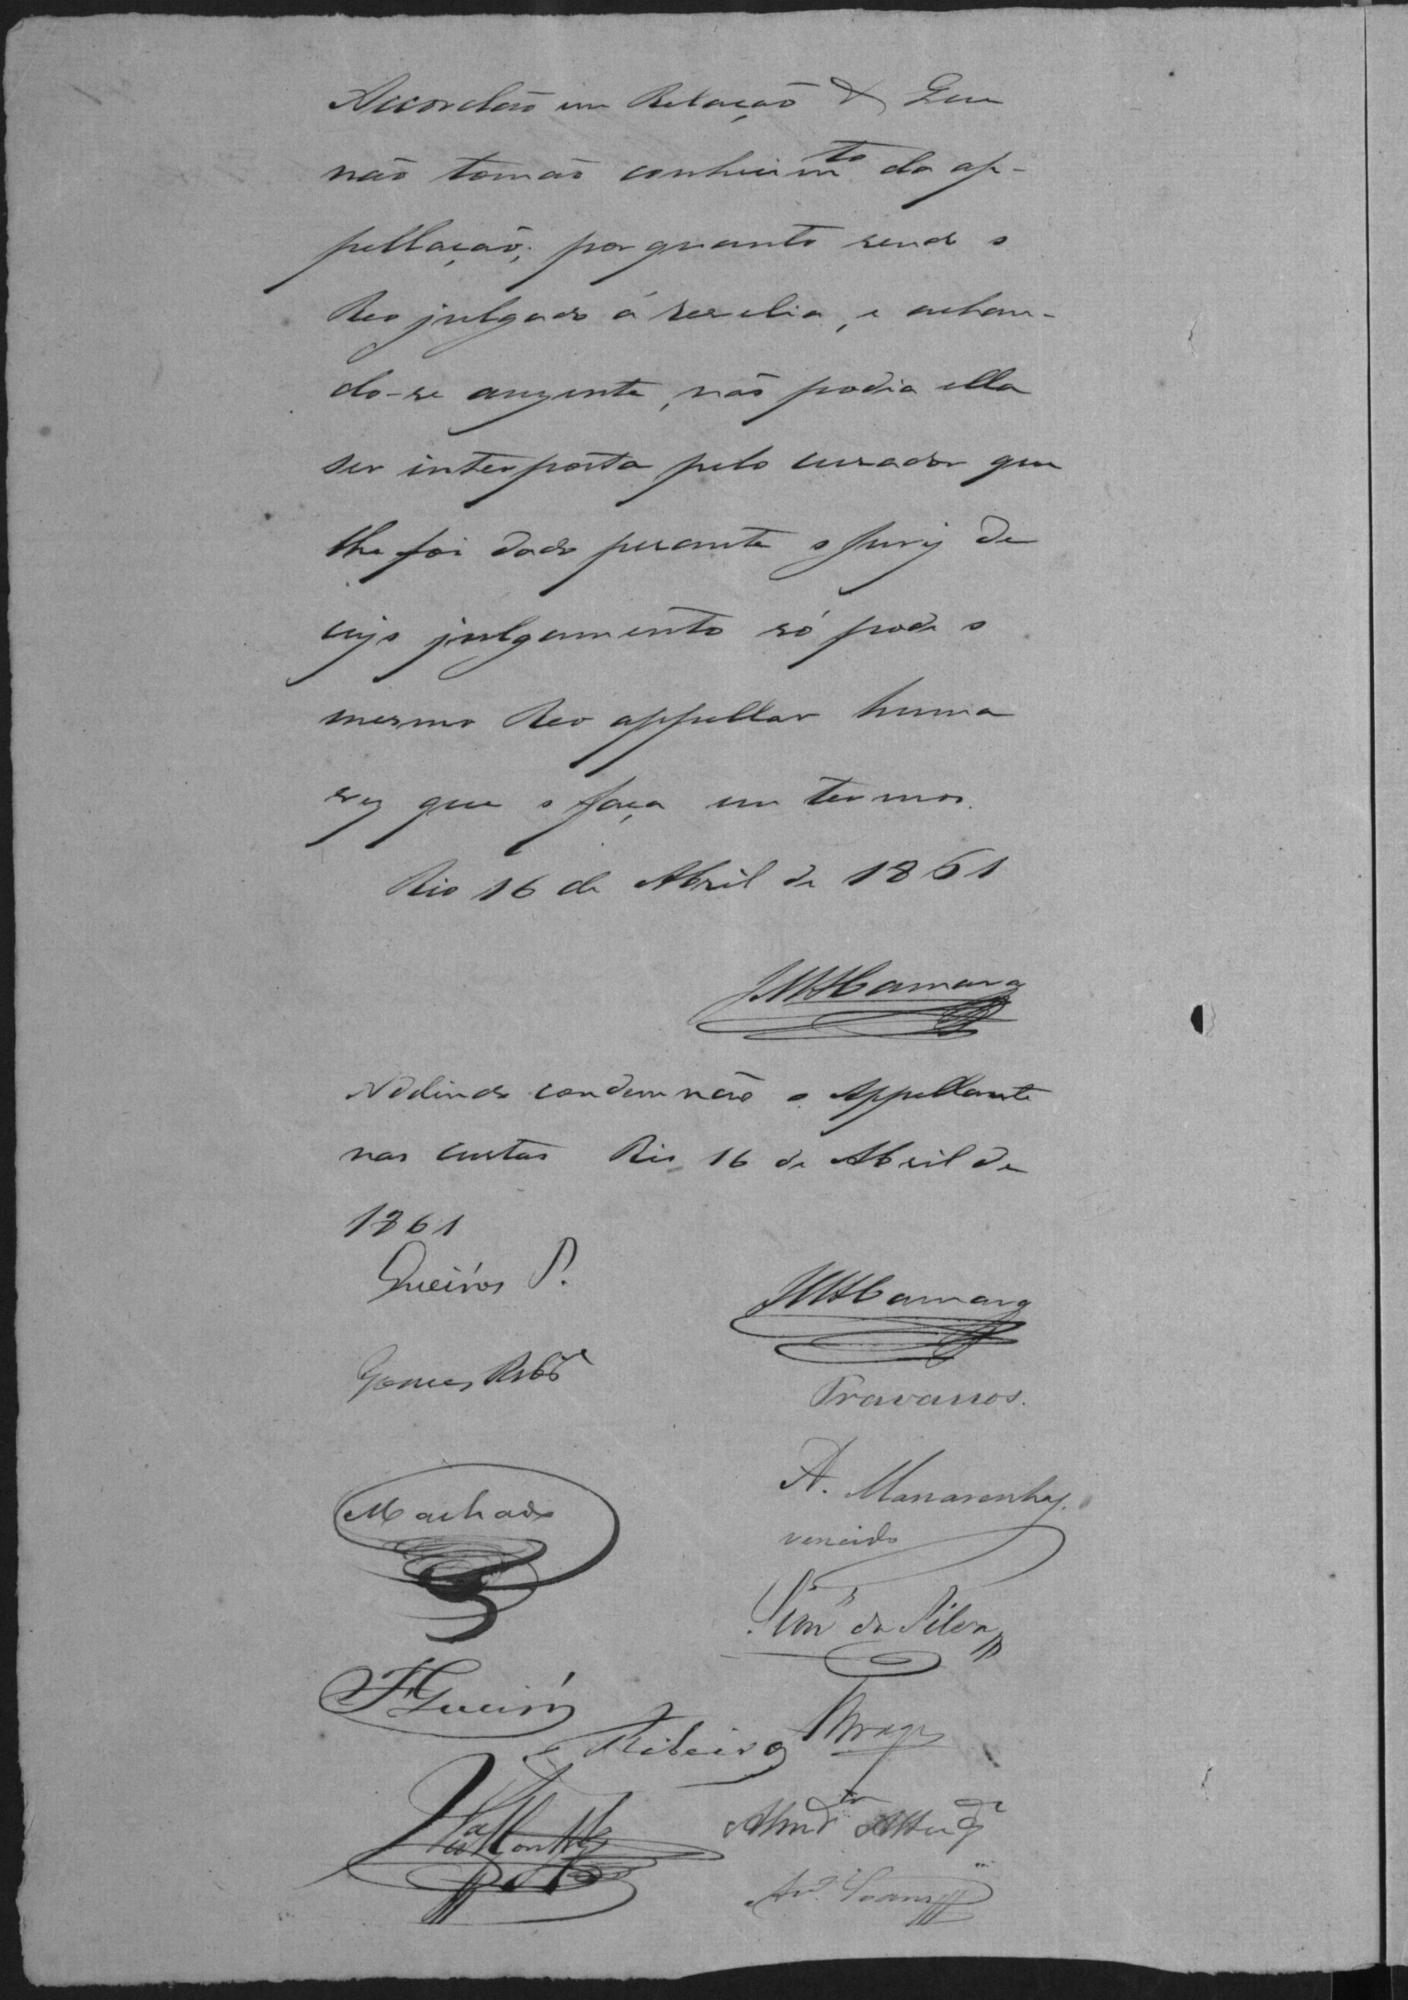 Accordão em Relação & Que
não tomão conhecimto da ap-
pellação; porquanto sendo o
Reo julgado á revelia, e achan-
do-se auzente, não podia ella
ser interposta pelo curador que
lhe foi dado perante o Jury de
cujo julgamento só pode o
mesmo Reo appellar huma
vez que o faça em termos.
Rio 16 de Abril de 1861
Camara
Addindo condemnão o Appellante
nas custas Rio 16 de Abril de
1861
Queirós P.
Camara
Gomes Ribro
Travassos.
Machado
A. Mascarenhas.
vencido
da Silva
Queirós
Ribeiro
Braga